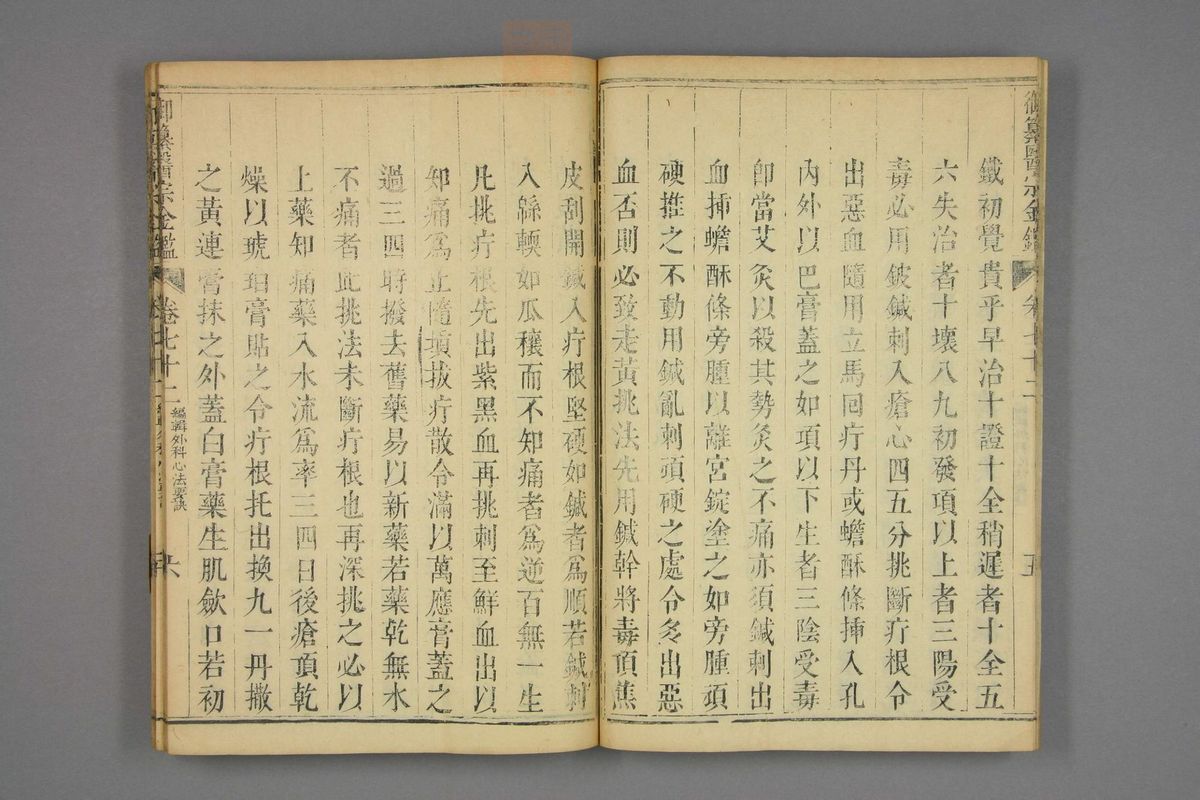 御纂醫宗金鑑 卷七十二 五
鐵初覺貴乎早治十證十全稍遲者十全五
六失治者十壞八九初發項以上者三陽受
毒必用鈹鍼刺入瘡心四五分挑斷疔根令
出惡血隨用立馬回疔丹或蟾酥條揷入孔
內外以巴膏蓋之如項以下生者三陰受毒
卽當艾灸以殺其勢灸之不痛亦須鍼刺出
血揷蟾酥條旁腫以離宮錠塗之如旁腫頑
硬推之不動用鍼亂刺頑硬之處令多出惡
血否則必致走黃挑法先用鍼幹將毒頂焦
皮刮開鍼入疔根堅硬如鍼者爲順若鍼刺
入綿輭如瓜穰而不知痛者爲逆百無一生
凡挑疔根先出紫黑血再挑刺至鮮血出以
知痛爲止隨塡拔疔散令滿以萬應膏蓋之
過三四時撥去舊藥易以新藥若藥乾無水
不痛者此挑法未斷疔根也再深挑之必以
上藥知痛藥入水流爲率三四日後瘡頂乾
燥以琥珀膏貼之令疔根托出換九一丹撒
之黃連膏抹之外蓋白膏藥生肌歛口若初
御纂醫宗金鑑 卷七十二 編輯外科心法要訣 六